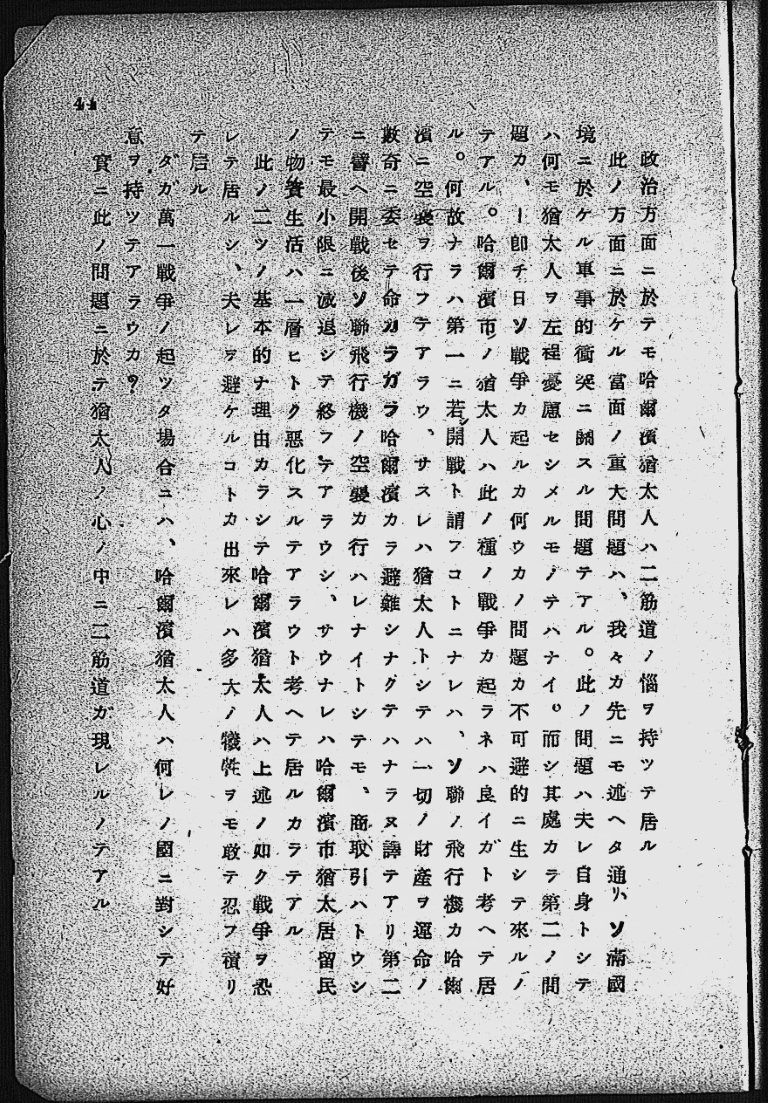 政治方面ニ於テモ哈爾濱猶太人ハ二筋道ノ惱ヲ持ツテ居ル
此ノ万面ニ於ケル當面ノ重大問題ハ、我々カ先ニモ述ヘタ通リ、ソ滿國
境ニ於ケル軍事的衝突ニ關スル問題テアル。此ノ問題ハ夫レ自身トシテ
ハ何モ猶太人ヲ左程憂慮セシメルモノテハナイ。而シ其處カラ第二ノ問
題カ、ー卽チ日ソ戰爭カ起ルカ何ウカノ問題カ不可避的ニ生シテ來ルノ
テアル。哈爾濱市ノ猶太人ハ此ノ種ノ戰爭カ起ラネハ良イガト考ヘテ居
ル。何故ナラハ第一ニ若シ開戰ト謂フコトニナレハ、ソ聯ノ飛行機カ哈爾
濱ニ空襲ヲ行フテアラウ、サスレハ猶太人トシテハ一切ノ財產ヲ運命ノ
數奇ニ委セテ命カラガラ哈爾濱カラ避難シナクテハナラヌ譯テアリ第二
ニ譬ヘ開戰後ソ聯飛行機ノ空襲カ行ハレナイトシテモ、商取引ハトウシ
テモ最小限ニ減退シテ終フテアラウシ、サウナレハ哈爾濱市猶太居留民
ノ物資生活ハ一層ヒトク惡化スルテアラウト考ヘテ居ルカラテアル
此ノ二ツノ基本的ナ理由カラシテ哈爾濱猶太人ハ上述ノ如ク戰爭ヲ恐
レテ居ルシ、夫レヲ避ケルコトカ出來レハ多大ノ犧牲ヲモ敢テ忍フ積リ
テ居ル
ダガ萬一戰爭ノ起ツタ場合ニハ、哈爾濱猶太人ハ何レノ國ニ對シテ好
意ヲ持ツテアラウカ?
實ニ此ノ問題ニ於テ猶太人ノ心ノ中ニ二筋道ガ現レルノテアル